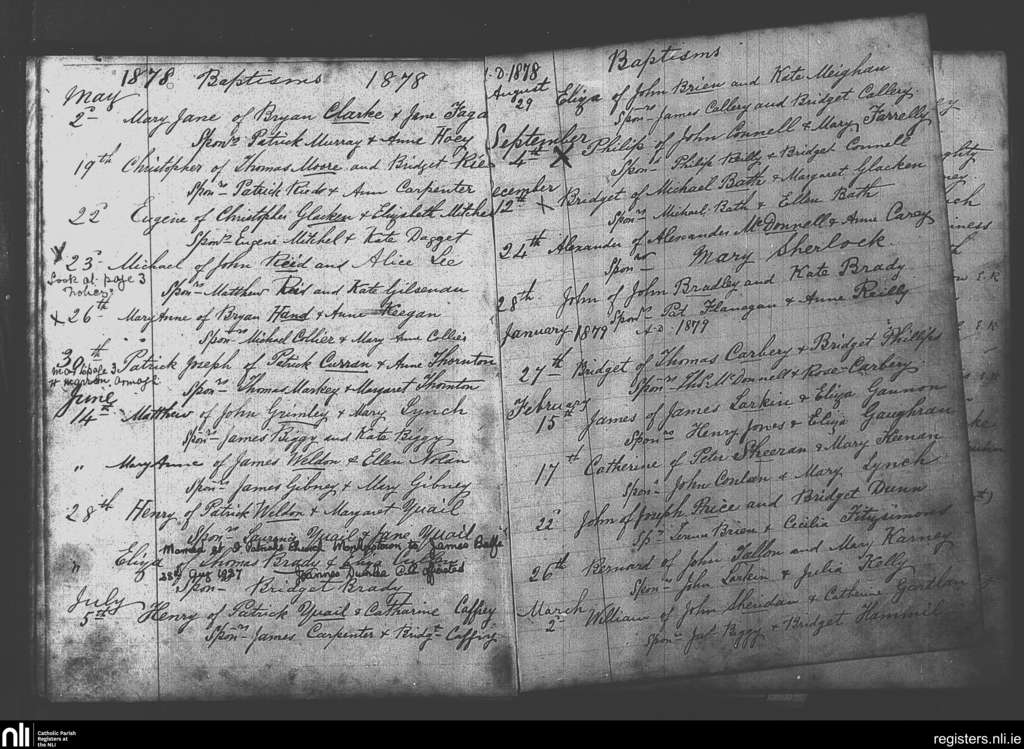 1878 Baptisms 1878
May
2d Mary Jane of Bryan Clarke & Jane Faga
Sponrs Patrick Murray & Anne Hoey
19th Christopher of Thomas Moore and Bridget
Sponrs Patrick & Ann Carpenter
22d Eugene of Christopher Glacken & Elizabeth Mitchel
Sponrs Eugene Mitchel & Kate Dagget
x 23d Michael of John Reid and Alice Lee
Look at page 3
Sponrs Matthew Reid and Kate Gilsenan
x 26th Mary Anne of Bryan Hand & Anne Keegan
Sponrs Michael Collier & Mary Anne Collier
30th Patrick Joseph of Patrick Curran & Anne Thornton
page 3
Armagh
Sponrs Thomas Markey & Margaret Thornton
June
14th Matthew of John Grimley & Mary Lynch
Sponrs James Biggy and Kate Biggy
" Mary Anne of James Weldon & Ellen Nolan
Sponrs James Gibney & Mary Gibney
28th Henry of Patrick Weldon & Margaret Quail
Sponrs Laurence Quail & Jane Quail
Married at St Patricks Church Monkstown to James
" Eliza of Thomas Brady & Eliza
28th Aug 1927 C.C. officiated
Sponr Bridget Brady
July
5th Henry of Patrick Quail & Catharine Caffrey
Sponrs James Carpenter & Bridgt Caffrey
A.D 1878 Baptisms
August
29 Eliza of John Brien and Kate Meighan
Sponrs James Callery and Bridget Callery
September
4th x Philip of John Connell & Mary Farrelly
Sponrs Philip Reilly & Bridget Connell
ecember
12th x Bridget of Michael Bath & Margaret Glacken
Sponrs Michael Bath & Ellen Bath
24th Alexander of Alexander McDonnell & Anne Carey
Sponsr Mary Sherlock
28th John of John Bradley and Kate Brady
Sponrs Pat Flanagan & Anne Reilly
January 1879 A.D. 1879
27th Bridget of Thomas Carbery & Bridget Phillips
Sponrs Thos McDonnell & Rose Carbery
February
15th James of James Larkin & Eliza Gannon
Sponrs Henry Jones & Eliza Gaughran
17th Catherine of Peter Sheeran & Mary Heenan
Sponrs John Conlon & Mary Lynch
22d John of Joseph Price and Bridget Dunn
Sprs Brien & Cecilia Fitzsimons
26th Bernard of John Fallon and Mary Karney
Sponrs John Larkin & Julia Kelly
March
2d William of John Sheridan & Catherine Gartlan
Sponrs Biggy & Bridget Hammill
nli
Catholic Parish
Registers at
the NLI
registers.nli.ie